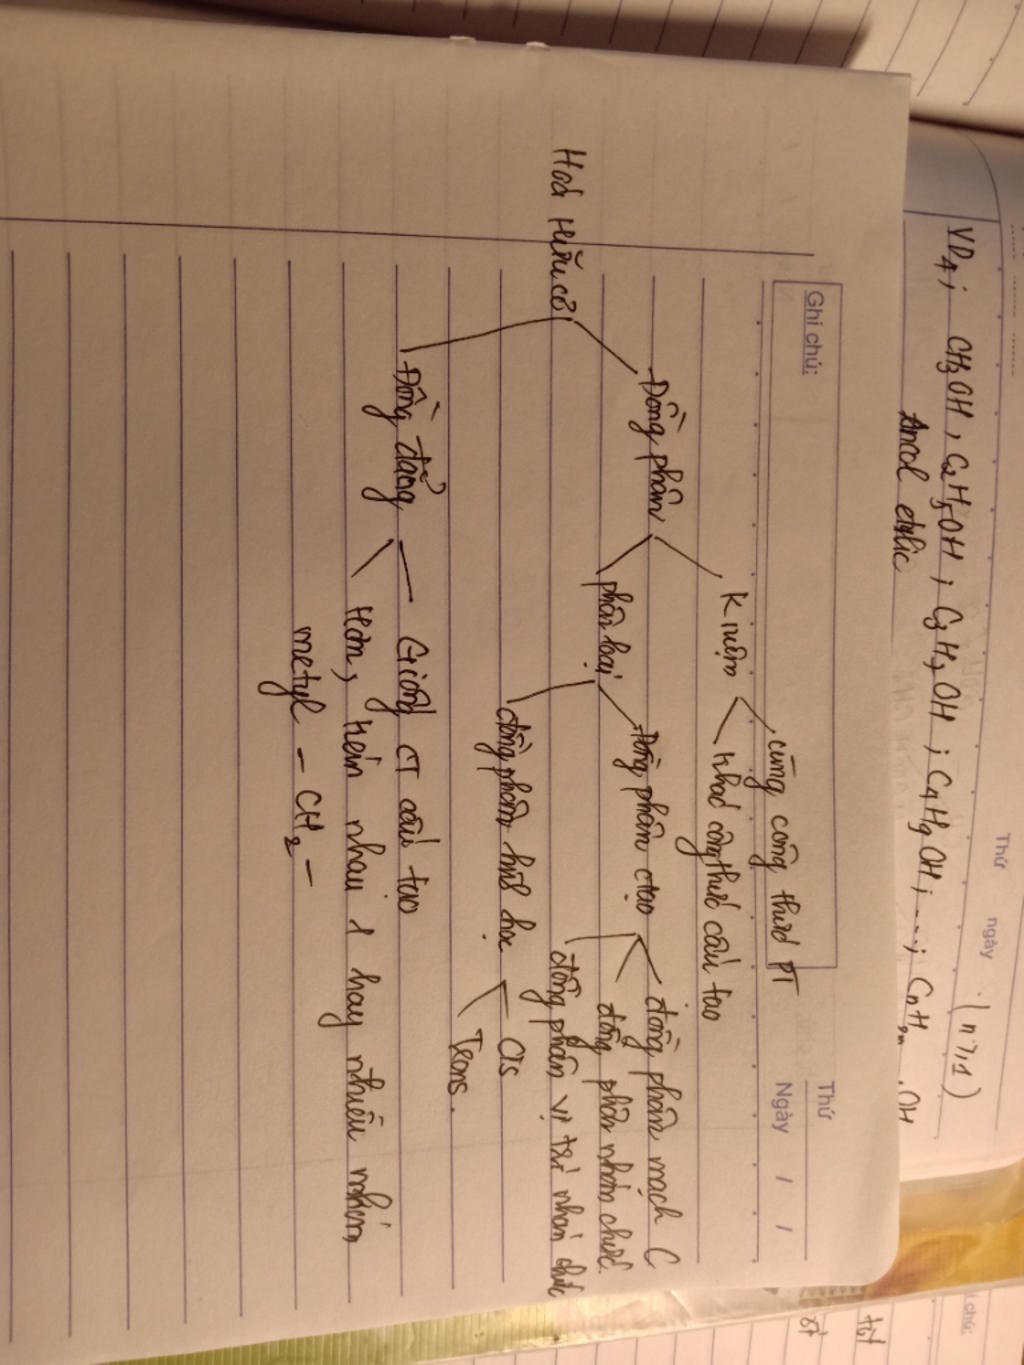 Thứ ngày
VD1; CH3OH, C2H5OH; C3H7OH; C4H9OH; ...; CnH2n OH (n≥1)
Ancol etylic
Thứ
Ghi chú:
Ngày / /
cùng công thức PT
K niệm
khác công thức cấu tạo
Đồng phân
đồng phân mạch C
Đồng phân ctạo
đồng phân nhóm chức
phân loại
đồng phân vị trí nhóm chức
Hoá Hữu cơ
đồng phân hình học
Cis
Trans.
Đồng đẳng
Giống CT cấu tạo
Hơn, kém nhau 1 hay nhiều nhóm
metyl - CH2 -